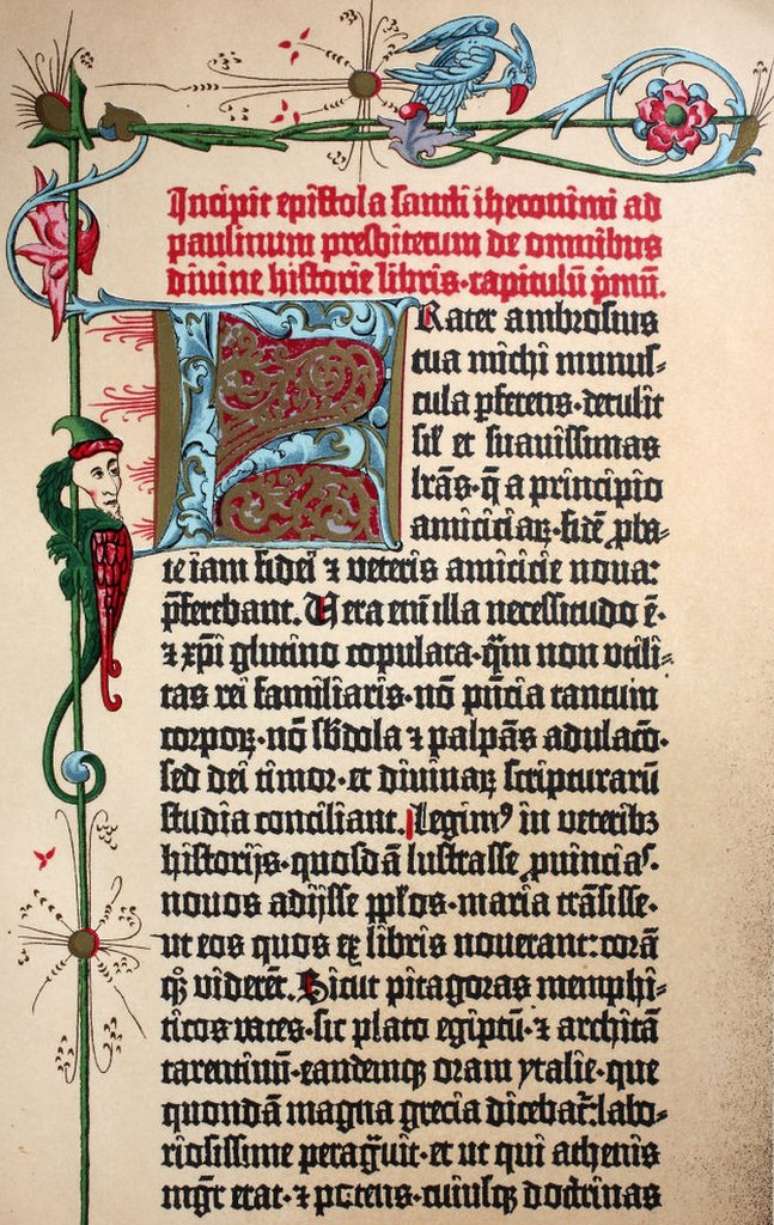 Incipit epistola sancti iheronimi ad
paulinum presbiterum de omnibus
divine historie libris·capitulū p̄mū.
Frater ambrosius
tua michi munus-
cula p̄ferens·detulit
sil̄ et suavissimas
lr̄as·q̄ a principio
amiciciaꝝ·fidē ꝓba-
te iam fidei ⁊ veteris amicicie nova:
p̄ferebant. Vera eni̅ illa necessitudo ē·
⁊ xp̄i glutino copulata·q̄m non utili-
tas rei familiaris·nō p̄ntia tantum
corpoꝝ·nō sb̄dola ⁊ palpās adulac̄o·
sed dei timor·et divinaꝝ scripturarū
studia conciliant. Legimꝰ in veteribꝫ
historijs·quosdā lustrasse ꝓuincias·
novos adijsse pp̄los·maria trāsisse·
ut eos quos ex libris noverant: corā
qꝫ viderēt. Sicut pitagoras memphi-
ticos vates·sic plato egiptū·⁊ architā
tarentinū·eandemqꝫ oram ytalie·que
quondā magna grecia dicebat̄: labo-
riosissime peragᷓuit·et ut qui athenis
mgr̄ erat·⁊ potens·cuiusqꝫ doctrinas